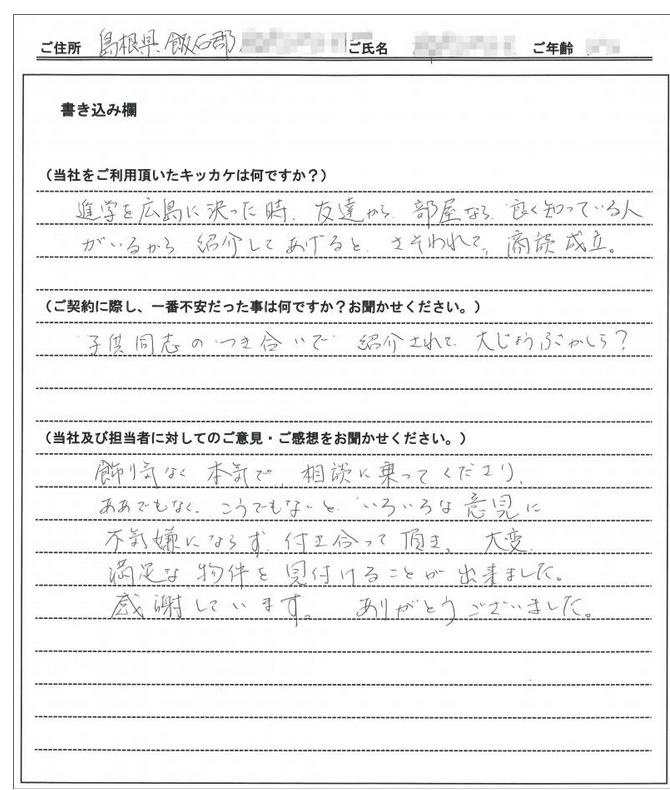 ご住所 島根県飯石郡 ご氏名 ご年齢
書き込み欄
(当社をご利用頂いたキッカケは何ですか？)
進学を広島に決った時、友達から、部屋なら、良く知っている人
がいるから 紹介してあげると、さそわれて、商談成立。
(ご契約に際し、一番不安だった事は何ですか？お聞かせください。)
子供同志のつき合いで 紹介されて 大じょうぶかしら？
(当社及び担当者に対してのご意見・ご感想をお聞かせください。)
飾り気なく 本気で、相談に乗ってくださり、
ああでもなく、こうでもないと、いろいろな意見に
不気嫌にならず、付き合って頂き、大変、
満足な物件を見付けることが出来ました。
感謝しています。 ありがとうございました。